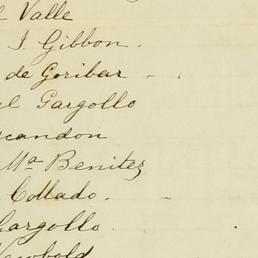 Valle
J. Gibbon.
de Goribar -
Gargollo
candon
Ma Benitez
Collado. -
Gargollo.
Newbold